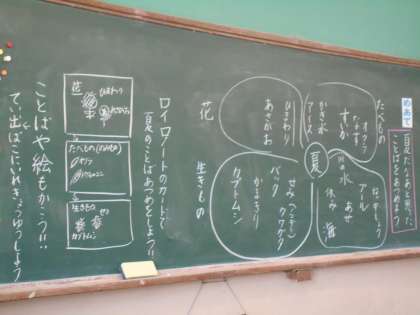 めあて
ことばをあつめよう
夏
たべもの
オクラ
なす
すいか
かき氷
アイス
花
ひまわり
あさがお
プール
あせ
休み
海
生きもの
セミ
クワガタ
バッタ
クワムシ
ロイロノートのカードで
夏のことばあつめをしよう!!
花
ひまわり
あさがお
たべもの(のみもの)
オクラ
生きもの
セミ
カブトムシ
ことばや絵もかこう!!
てい出ばこにいれきょうゆうしよう